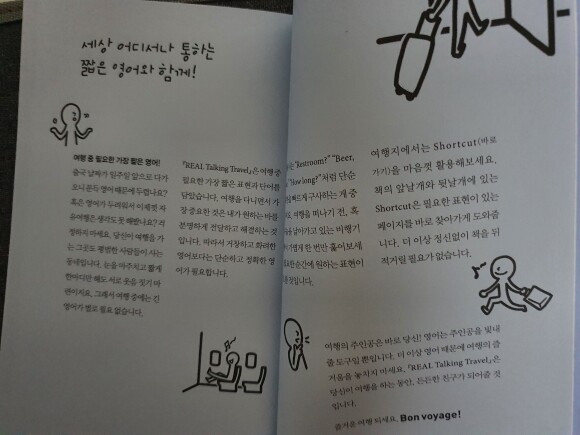 세상 어디서나 통하는
짧은 영어와 함께!
여행 중 필요한 가장 짧은 영어!
출국 날짜가 일주일 앞으로 다가
오니 문득 영어 때문에 두렵나요?
혹은 영어가 두려워서 이제껏 자
유여행은 생각도 못 해봤나요? 걱
정하지 마세요. 당신이 여행을 가
는 그곳도 평범한 사람들이 사는
동네입니다. 눈을 마주치고 짧게
한마디만 해도 서로 웃음 짓기 마
련이지요. 그래서 여행 중에는 긴
영어가 별로 필요 없습니다.
『REAL Talking Travel』은 여행 중
필요한 가장 짧은 표현과 단어를
담았습니다. 여행을 다니면서 가
장 중요한 것은 내가 원하는 바를
분명하게 전달하고 해결하는 것입
니다. 따라서 거창하고 화려한
영어보다는 단순하고 정확한 영
어가 필요합니다.
"Restroom?" "Beer,
"How long?"처럼 단순
빠르게 구사하는 게 중
여행을 떠나기 전, 혹
날아가고 있는 비행기
가볍게 한 번만 훑어보세
순간에 원하는 표현이
것입니다.
여행지에서는 Shortcut(바로
가기)을 마음껏 활용해보세요.
책의 앞날개와 뒷날개에 있는
Shortcut은 필요한 표현이 있는
페이지를 바로 찾아가게 도와줍
니다. 더 이상 정신없이 책을 뒤
적거릴 필요가 없습니다.
여행의 주인공은 바로 당신! 영어는 주인공을 빛내
줄 도구일 뿐입니다. 더 이상 영어 때문에 여행의 즐
거움을 놓치지 마세요. 『REAL Talking Travel』은
당신이 여행을 하는 동안, 든든한 친구가 되어줄 것
입니다.
즐거운 여행 되세요. Bon voyage!